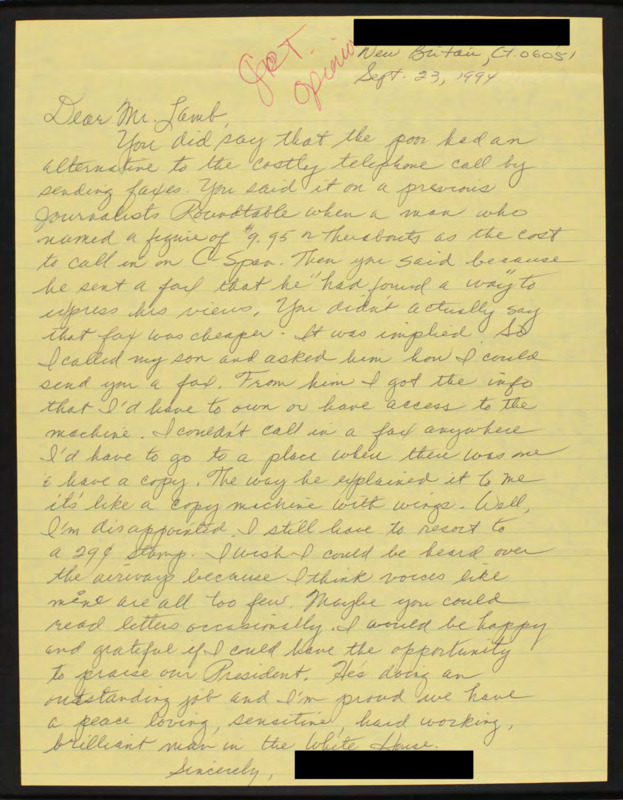 Jet.
opinion
New Britain, Ct. 06051
Sept. 23, 1994
Dear Mr. Lamb,
You did say that the poor had an
alternative to the costly telephone call by
sending faxes. You said it on a previous
Journalists Roundtable when a man who
named a figure of $9.95 or therabouts as the cost
to call in on C-Span. Then you said because
he sent a fax that he "had found a way" to
express his views. You didn't actually say
that fax was cheaper. It was implied. So
I called my son and asked him how I could
send you a fax. From him I got the info
that I'd have to own or have access to the
machine. I couldn't call in a fax anywhere
I'd have to go to a place where there was one
& have a copy. The way he explained it to me
it's like a copy machine with wings. Well,
I'm disappointed. I still have to resort to
a 29¢ stamp. I wish I could be heard over
the airways because I think voices like
mine are all too few. Maybe you could
read letters occasionally. I would be happy
and grateful if I could have the opportunity
to praise our President. He's doing an
outstanding job and I'm proud we have
a peace loving, sensitive, hard working,
brilliant man in the White House.
Sincerely,